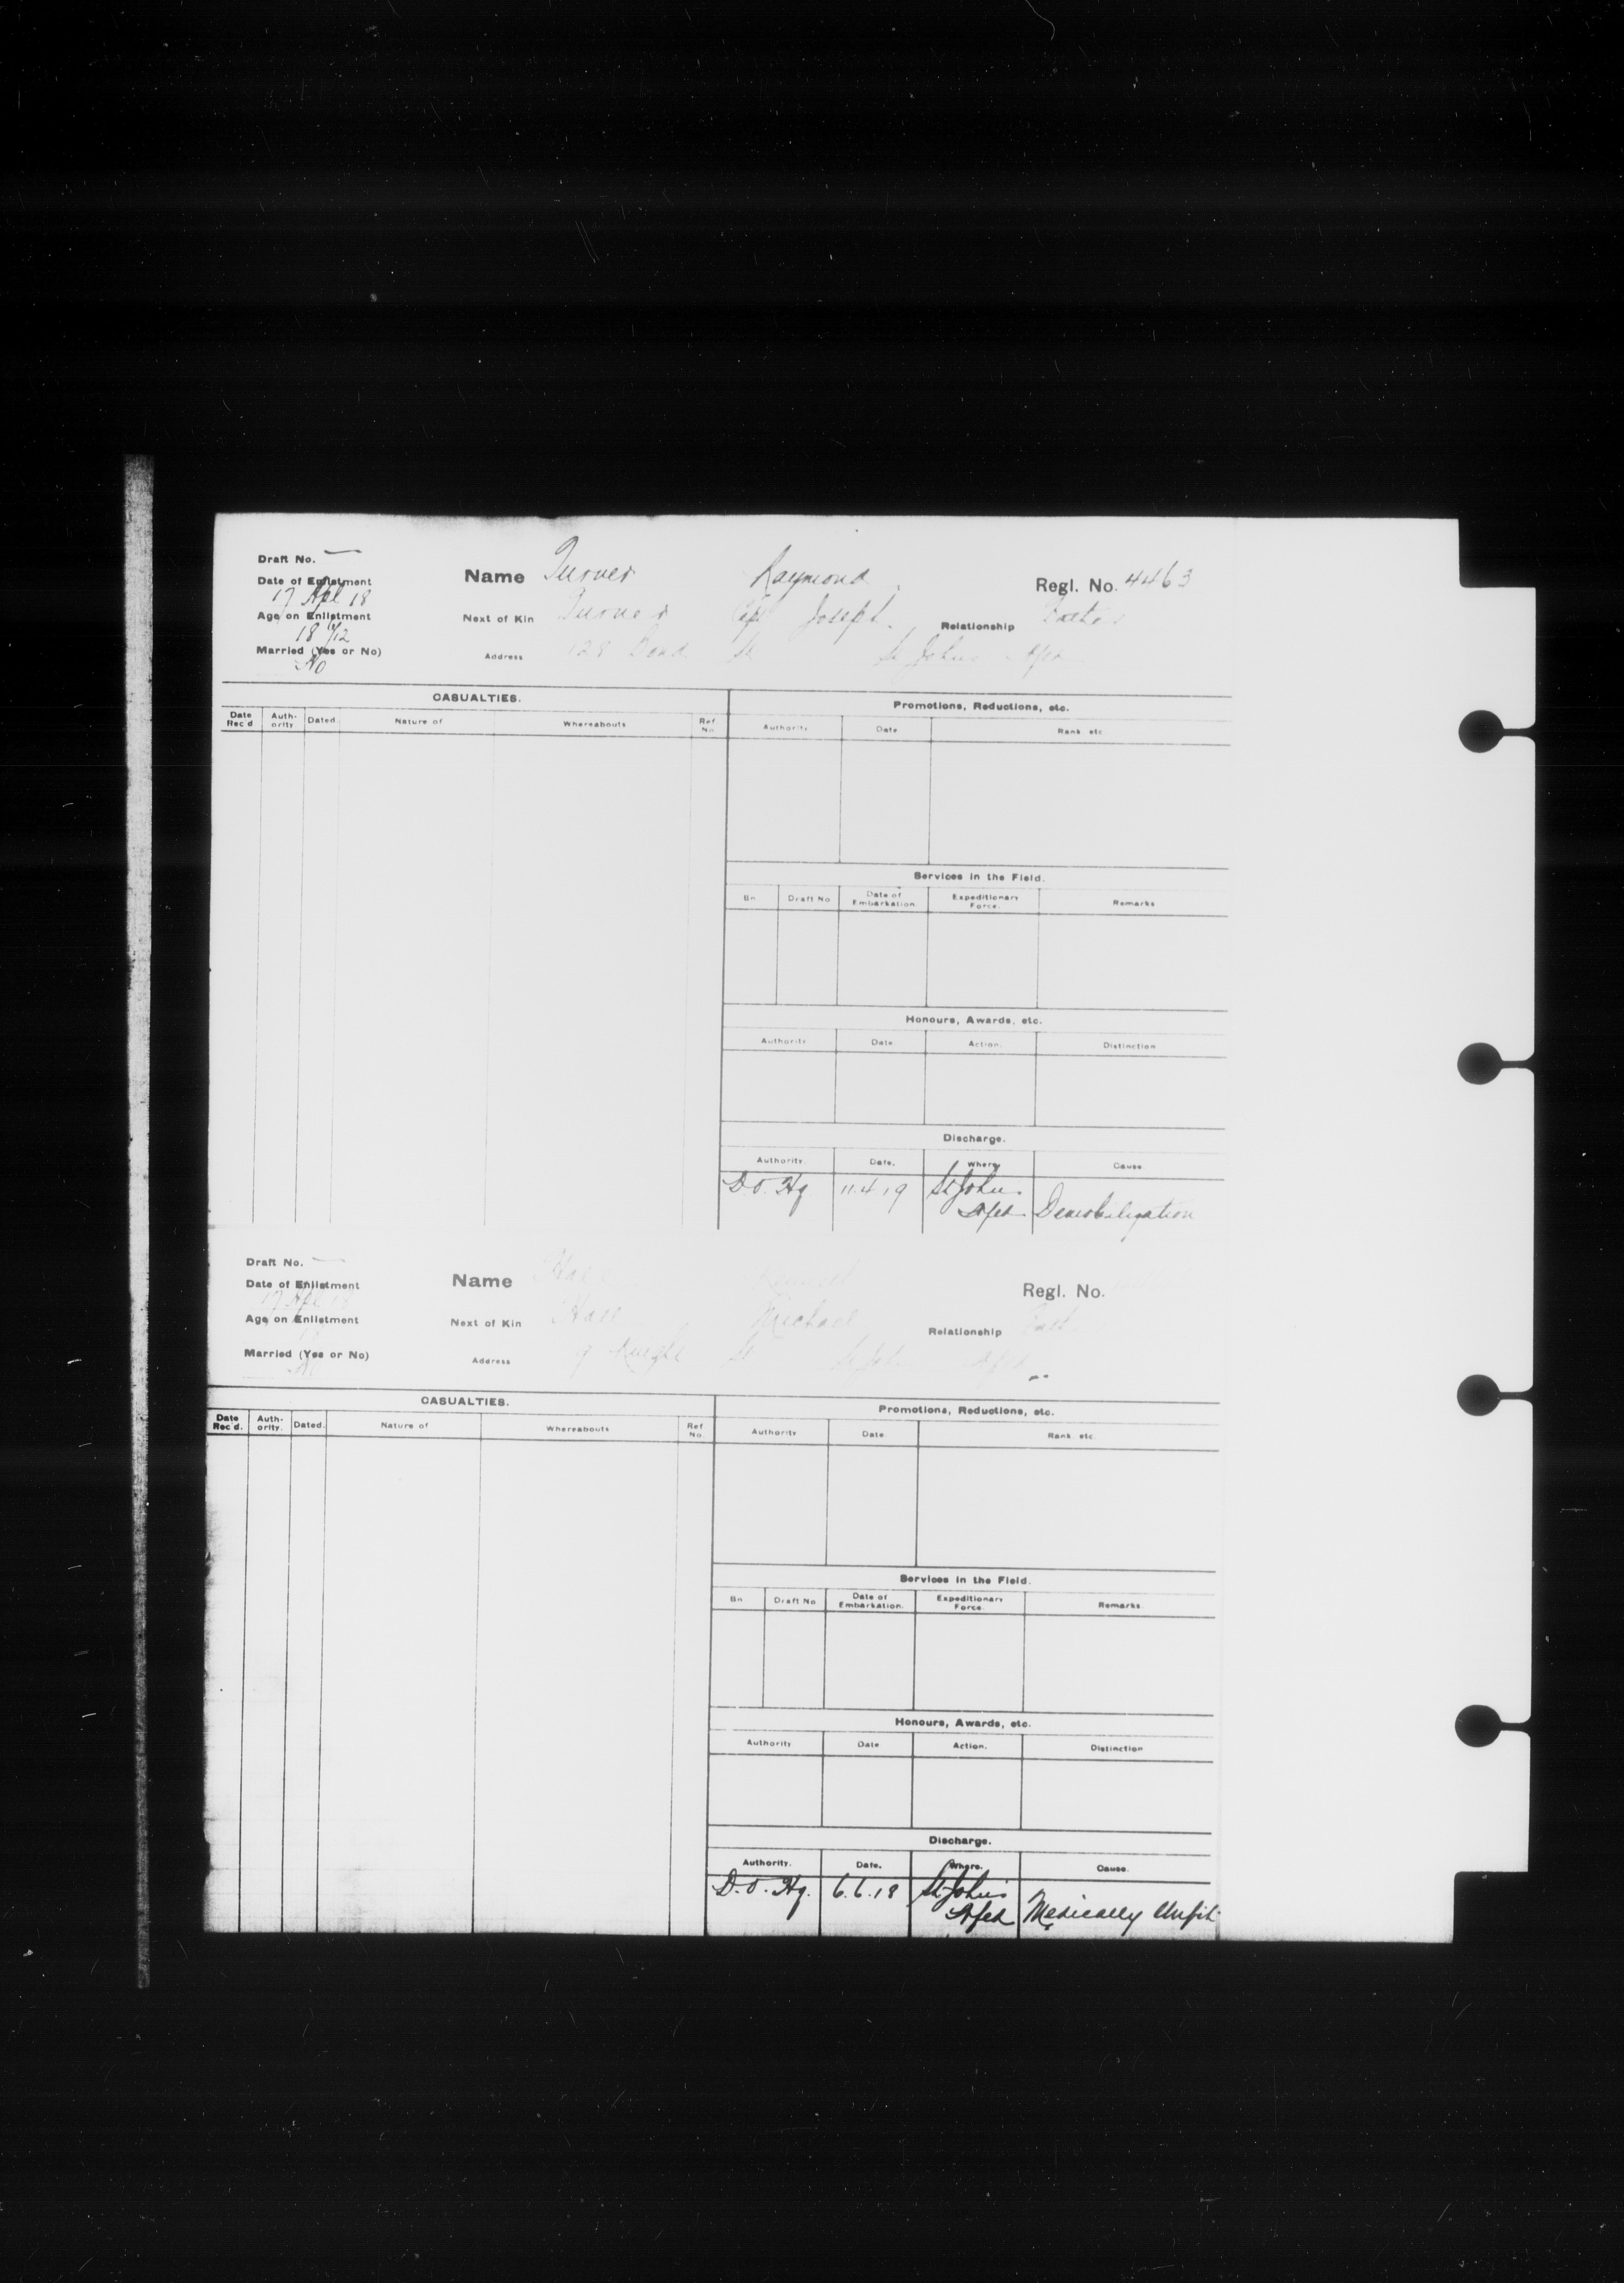 Draft No. —
Name Turner Raymond Regl. No. 4463
Date of Enlistment
17 Apl 18
Next of Kin Turner Capt Joseph. Relationship Father
Age on Enlistment
18 6/12
Address 128 Bond St St Johns Nfld
Married (Yes or No)
No
CASUALTIES. Promotions, Reductions, etc.
Date Rec'd Auth-ority Dated. Nature of Whereabouts Ref No Authority Date Rank etc
Services in the Field.
Bn Draft No Date of Embarkation Expeditionary Force. Remarks
Honours, Awards, etc.
Authority Date. Action. Distinction
Discharge.
Authority Date. Where Cause
D.O. Hq. 11.4.19 St Johns Nfld Demobilization
Draft No. —
Name Hall Regl. No.
Date of Enlistment
17 Apl
Next of Kin Hall Michael Relationship
Age on Enlistment
Address 9 Knight St St Johns Nfld
Married (Yes or No)
No
CASUALTIES. Promotions, Reductions, etc.
Date Rec'd. Auth-ority. Dated. Nature of Whereabouts Ref No Authority Date Rank. etc
Services in the Field.
Bn Draft No Date of Embarkation. Expeditionary Force. Remarks
Honours, Awards, etc.
Authority Date Action. Distinction
Discharge.
Authority. Date. Where. Cause.
D.O. Hq. 6.6.18 St John's Nfld Medically Unfit